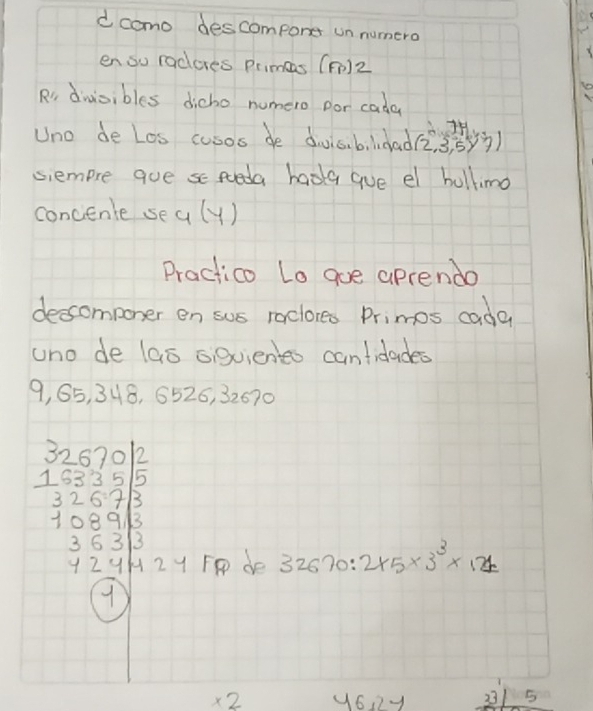 ¿como descomponer un numero
en su ractores Primos (FP)2
R// divisibles dicho numero por cada
Uno de Los cusos de divisibilidad (2,3,5 y 7)
siempre que se pueda hasta que el hultimo
conciente sea (1)
Practico Lo que aprendo
descomponer en sus ractores Primos cada
uno de las siguientes cantidades
9, 65, 348, 6526, 32670
32670|2
16335|5
3267|3
1089|3
363|3
121|121 FP de 32670: 2x5x3³x121
1
x2 46,24 23 5